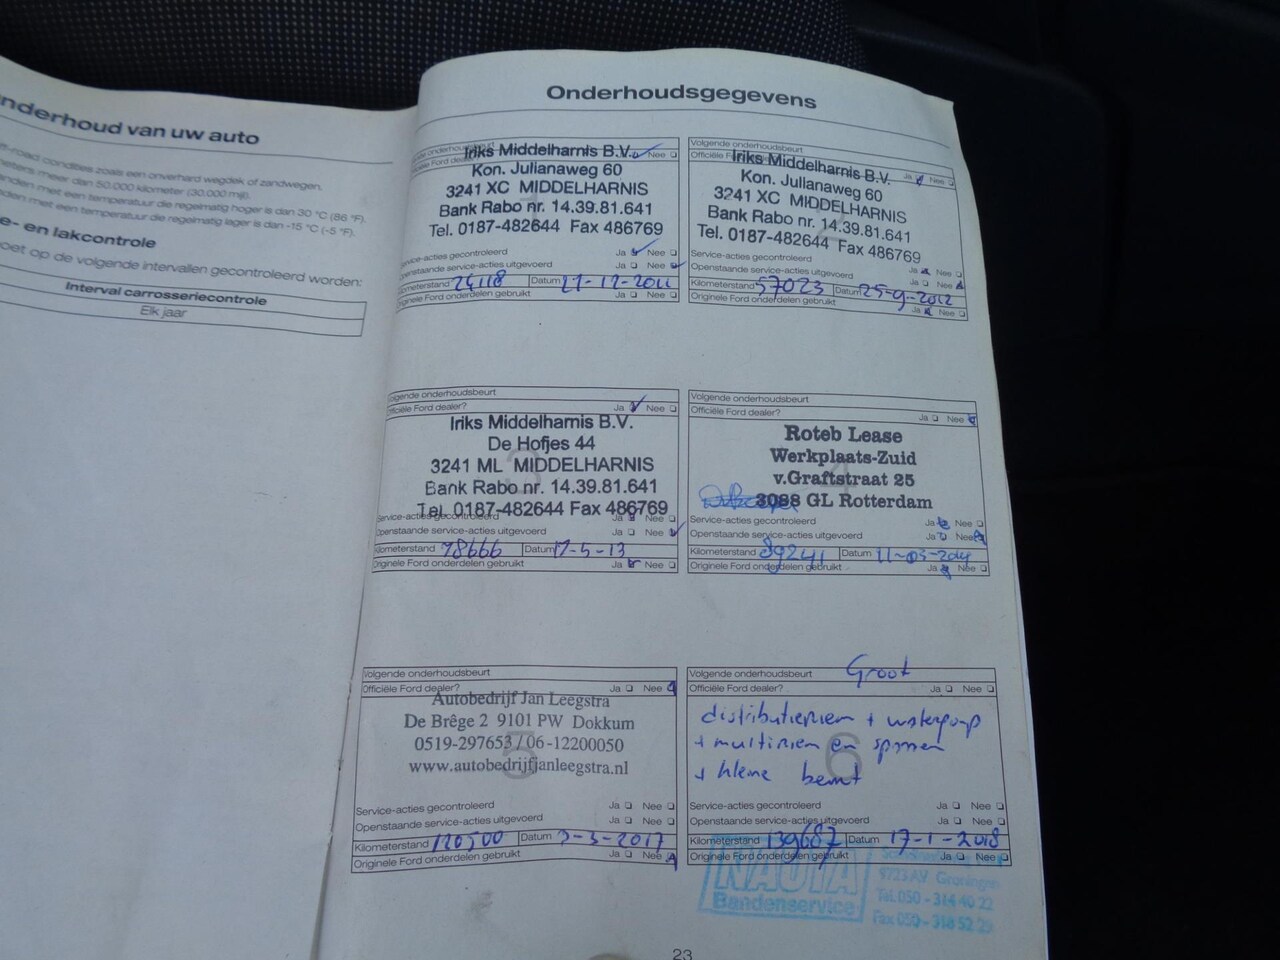 nderhoud van uw auto
ff-road condities zoals een onverhard wegdek of zandwegen.
meters meer dan 50.000 kilometer (30.000 mijl).
anden met een temperatuur die regelmatig hoger is dan 30 °C (86 °F).
den met een temperatuur die regelmatig lager is dan -15 °C (-5 °F).
e- en lakcontrole
oet op de volgende intervallen gecontroleerd worden:
Interval carrosseriecontrole
Elk jaar
Onderhoudsgegevens
Iriks Middelharnis B.V. Nee
Kon. Julianaweg 60
3241 XC MIDDELHARNIS
Bank Rabo nr. 14.39.81.641
Tel. 0187-482644 Fax 486769
Service-acties gecontroleerd Ja Nee
Openstaande service-acties uitgevoerd Ja Nee
Kilometerstand 24118 Datum 21-12-2011
Originele Ford onderdelen gebruikt Ja Nee
Volgende onderhoudsbeurt
Officiële Ford Ja Nee
Iriks Middelharnis B.V.
Kon. Julianaweg 60
3241 XC MIDDELHARNIS
Bank Rabo nr. 14.39.81.641
Tel. 0187-482644 Fax 486769
Service-acties gecontroleerd Ja Nee
Openstaande service-acties uitgevoerd Ja Nee
Kilometerstand 57023 Datum 25-9-2012
Originele Ford onderdelen gebruikt Ja Nee
Volgende onderhoudsbeurt
Officiële Ford dealer? Ja Nee
Iriks Middelharnis B.V.
De Hofjes 44
3241 ML MIDDELHARNIS
Bank Rabo nr. 14.39.81.641
Tel. 0187-482644 Fax 486769
Service-acties gecontroleerd Ja Nee
Openstaande service-acties uitgevoerd Ja Nee
Kilometerstand 78666 Datum 17-5-13
Originele Ford onderdelen gebruikt Ja Nee
Volgende onderhoudsbeurt
Officiële Ford dealer? Ja Nee
4
Roteb Lease
Werkplaats-Zuid
v.Graftstraat 25
3088 GL Rotterdam
Service-acties gecontroleerd Ja Nee
Openstaande service-acties uitgevoerd Ja Nee
Kilometerstand 89241 Datum 11-03-2014
Originele Ford onderdelen gebruikt Ja Nee
Volgende onderhoudsbeurt
Officiële Ford dealer? Ja Nee
Autobedrijf Jan Leegstra
De Brêge 2 9101 PW Dokkum
0519-297653 / 06-12200050
www.autobedrijfjanleegstra.nl
5
Service-acties gecontroleerd Ja Nee
Openstaande service-acties uitgevoerd Ja Nee
Kilometerstand 120500 Datum 3-3-2017
Originele Ford onderdelen gebruikt Ja Nee
Volgende onderhoudsbeurt Groot
Officiële Ford dealer? Ja Nee
distributieriem + waterpomp
+ multiriem en spannen
+ kleine beurt
6
Service-acties gecontroleerd Ja Nee
Openstaande service-acties uitgevoerd Ja Nee
Kilometerstand 139687 Datum 17-1-2018
Originele Ford onderdelen gebruikt Ja Nee
NAUTA
Bandenservice
9723 AV Groningen
Tel. 050 - 314 40 22
Fax 050 - 318 52 29
23